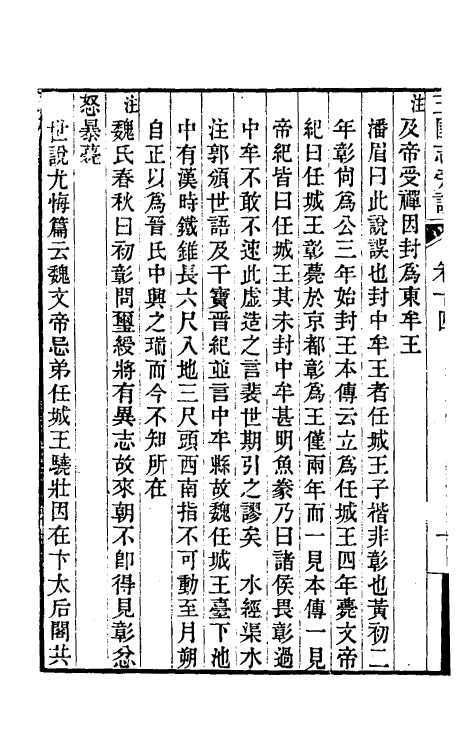 三國志旁證 卷十四
注及帝受禪因封爲東牟王
潘眉曰此說誤也封中牟王者任城王子楷非彰也黃初二
年彰尙爲公三年始封王本傳云立爲任城王四年薨文帝
紀曰任城王彰薨於京都彰爲王僅兩年而一見本傳一見
帝紀皆曰任城王其未封中牟甚明魚豢乃曰諸侯畏彰過
中牟不敢不速此虛造之言裴世期引之謬矣 水經渠水
注郭頒世語及干寶晉紀並言中牟縣故魏任城王臺下池
中有漢時鐵錐長六尺入地三尺頭西南指不可動至月朔
自正以爲晉氏中興之瑞而今不知所在
注魏氏春秋曰初彰問璽綬將有異志故來朝不卽得見彰忿
怒暴薨
世說尤悔篇云魏文帝忌弟任城王驍壯因在卞太后閣共